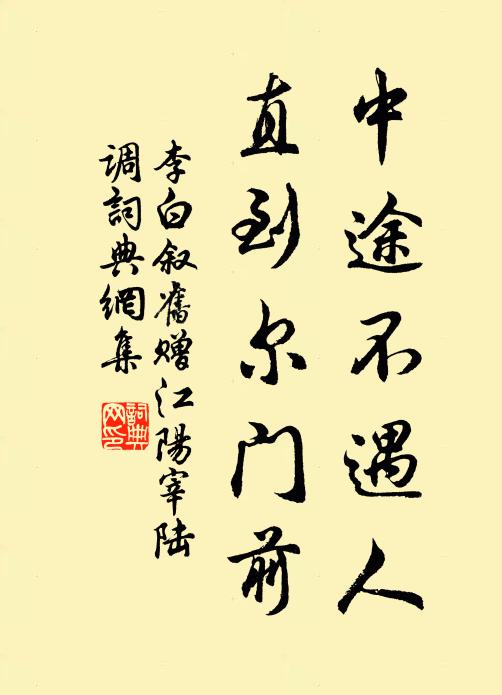 中途不遇人
直到尔门前
李白叙舊赠江陽宰陆
调詞典網集
詞典网印